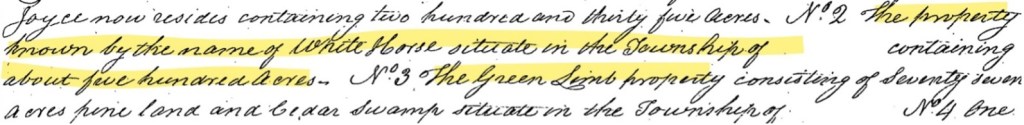 Joyce now resides containing two hundred and thirty five Acres. No. 2 The property
known by the name of White Horse situate in the Township of containing
about five hundred Acres. No. 3 The Green Limb property consisting of Seventy seven
acres pine land and Cedar Swamp situate in the Township of No. 4 One